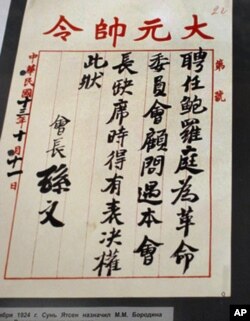 大元帥令
第 號
聘任鮑羅庭為革命
委員會顧問遇本會
長缺席時得有表決權
此狀
會長 孫文
中華民國十三年十月十一日
1924 г. Сунь Ятсен назначил М.М. Бородина
AP